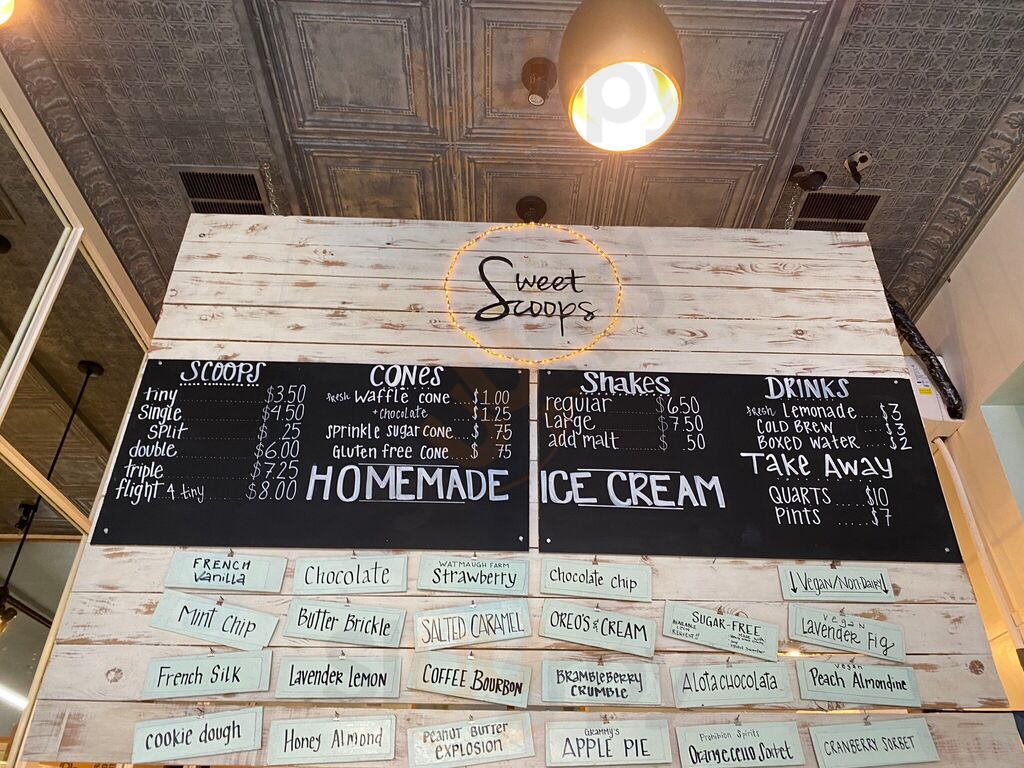 Sweet
Scoops
SCOOPS
tiny $3.50
Single $4.50
Split .25
double $6.00
triple $7.25
flight 4 tiny $8.00
CONES
FRESH Waffle cone $1.00
+ chocolate $1.25
Sprinkle Sugar CONE $ .75
Gluten free Cone $ .75
HOMEMADE ICE CREAM
Shakes
regular $6.50
Large $7.50
add malt $ .50
DRINKS
FRESH Lemonade $3
COLD BREW $3
BOXED WATER $2
TAKE AWAY
QUARTS $10
PINTS $7
FRENCH
Vanilla
Chocolate
WATMAUGH FARM
Strawberry
Chocolate chip
↓Vegan/Non Dairy↓
Mint Chip
Butter Brickle
SALTED CARAMEL
OREO'S & CREAM
SUGAR-FREE
AVAILABLE UPON REQUEST!!
Vegan
Lavender Fig
French Silk
Lavender Lemon
COFFEE BOURBON
BRAMBLEBERRY
CRUMBLE
Alotachocolata
Vegan
Peach Almondine
cookie dough
Honey Almond
PEANUT BUTTER
EXPLOSION
Grammy's
APPLE PIE
Prohibition Spirits
Orangecello Sorbet
CRANBERRY SORBET